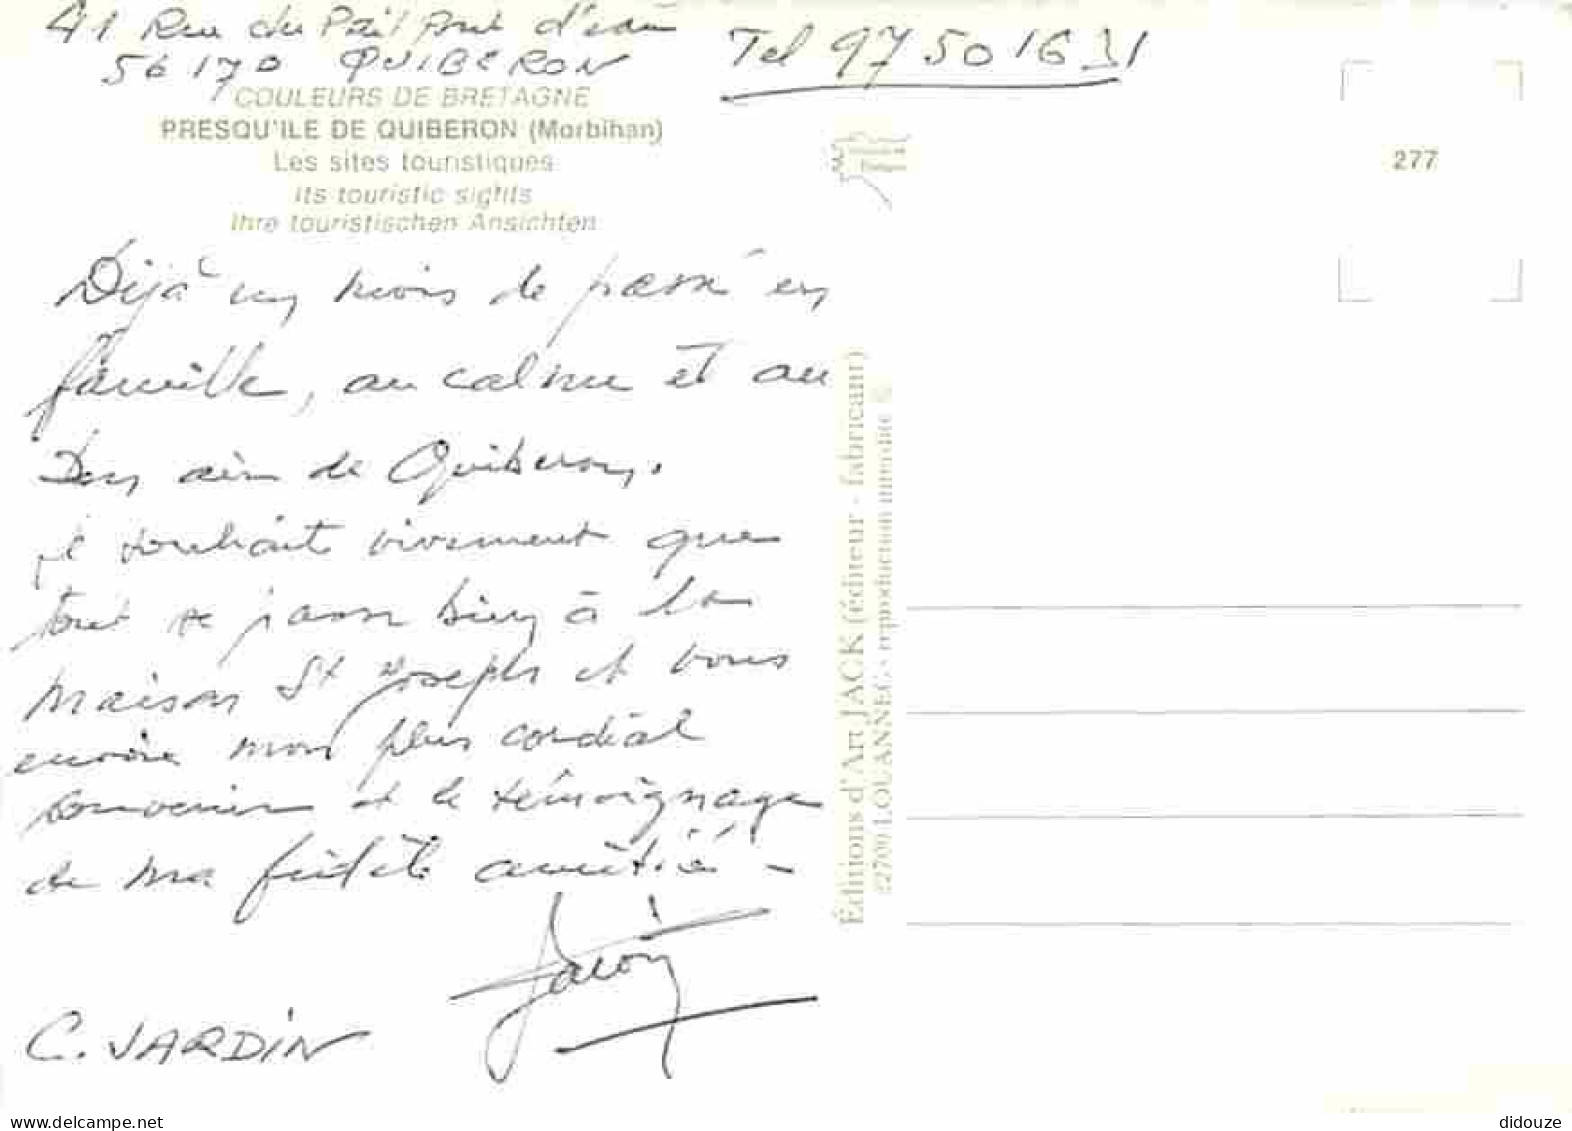 41 Rue du Petit Port d'eau
56170 QUIBERON
Tel 97 50 16 31
COULEURS DE BRETAGNE
PRESQU'ILE DE QUIBERON (Morbihan)
Les sites touristiques
Its touristic sights
Ihre touristischen Ansichten
277
Déjà un mois de passé en
famille, au calme et au
bon air de Quiberon.
je souhaite vivement que
tout se passe bien à la
maison St Joseph et vous
envoie mon plus cordial
souvenir et le témoignage
de ma fidèle amitié -
C. JARDIN
Éditions d'Art JACK (éditeur - fabricant)
22700 LOUANNEC reproduction interdite ©
delcampe.net
didouze